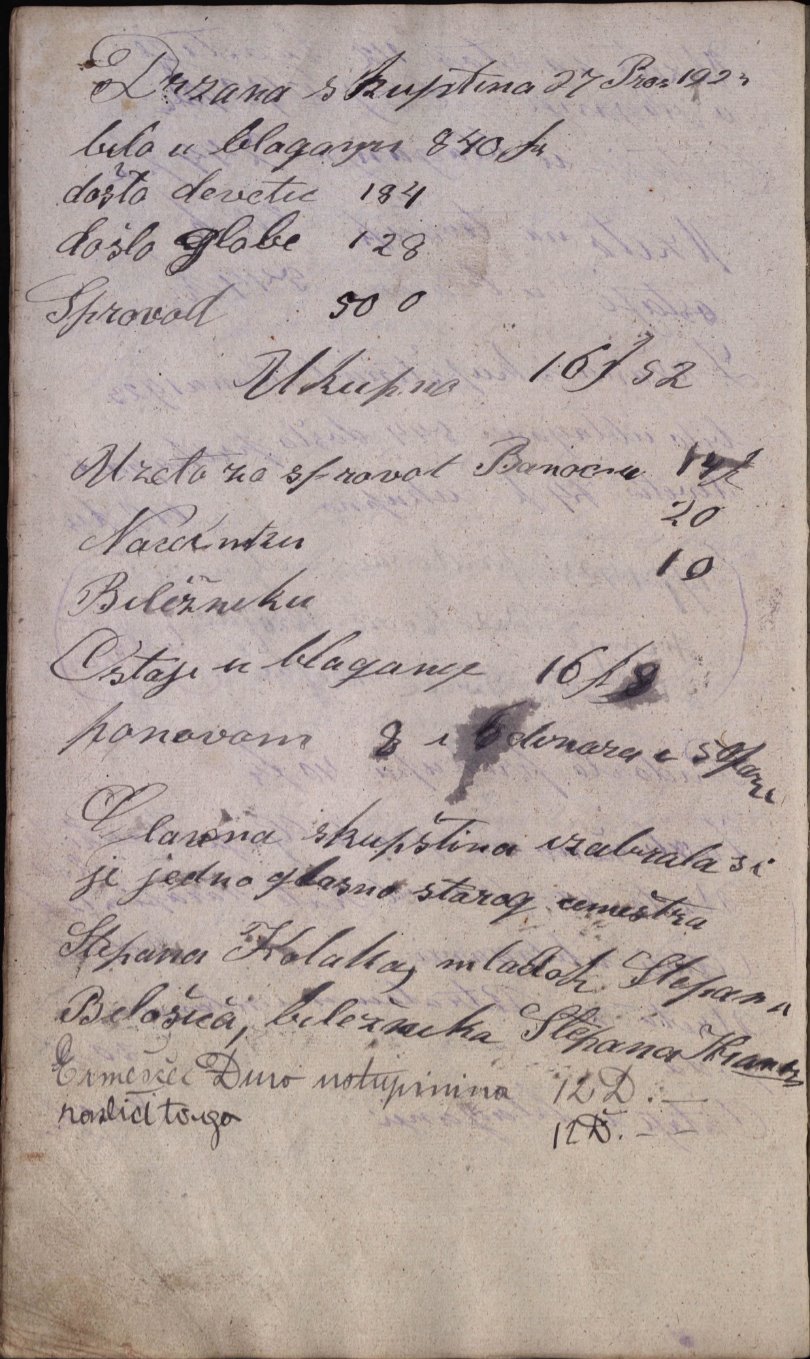 Držana skupština 27 Pros 192
bilo u blagajni 840 fr
došlo devetic 184
došlo globe 128
Sprovod 500
Ukupno 16f 52
Uzeto za sprovod 14f
20
10
Bilěžneku
Ostaje u blagajne 16f 8
ponovom 8 i 6 dinara i 50 para
Glavna skupština izabrala si
je jedno glasno starog cemeštra
Stepana Kolaka, mladoh Stepana
Belošića, bilěžneka Stepana
Ermešćec Đuro ustupnina 12 D. —
12 D. — —